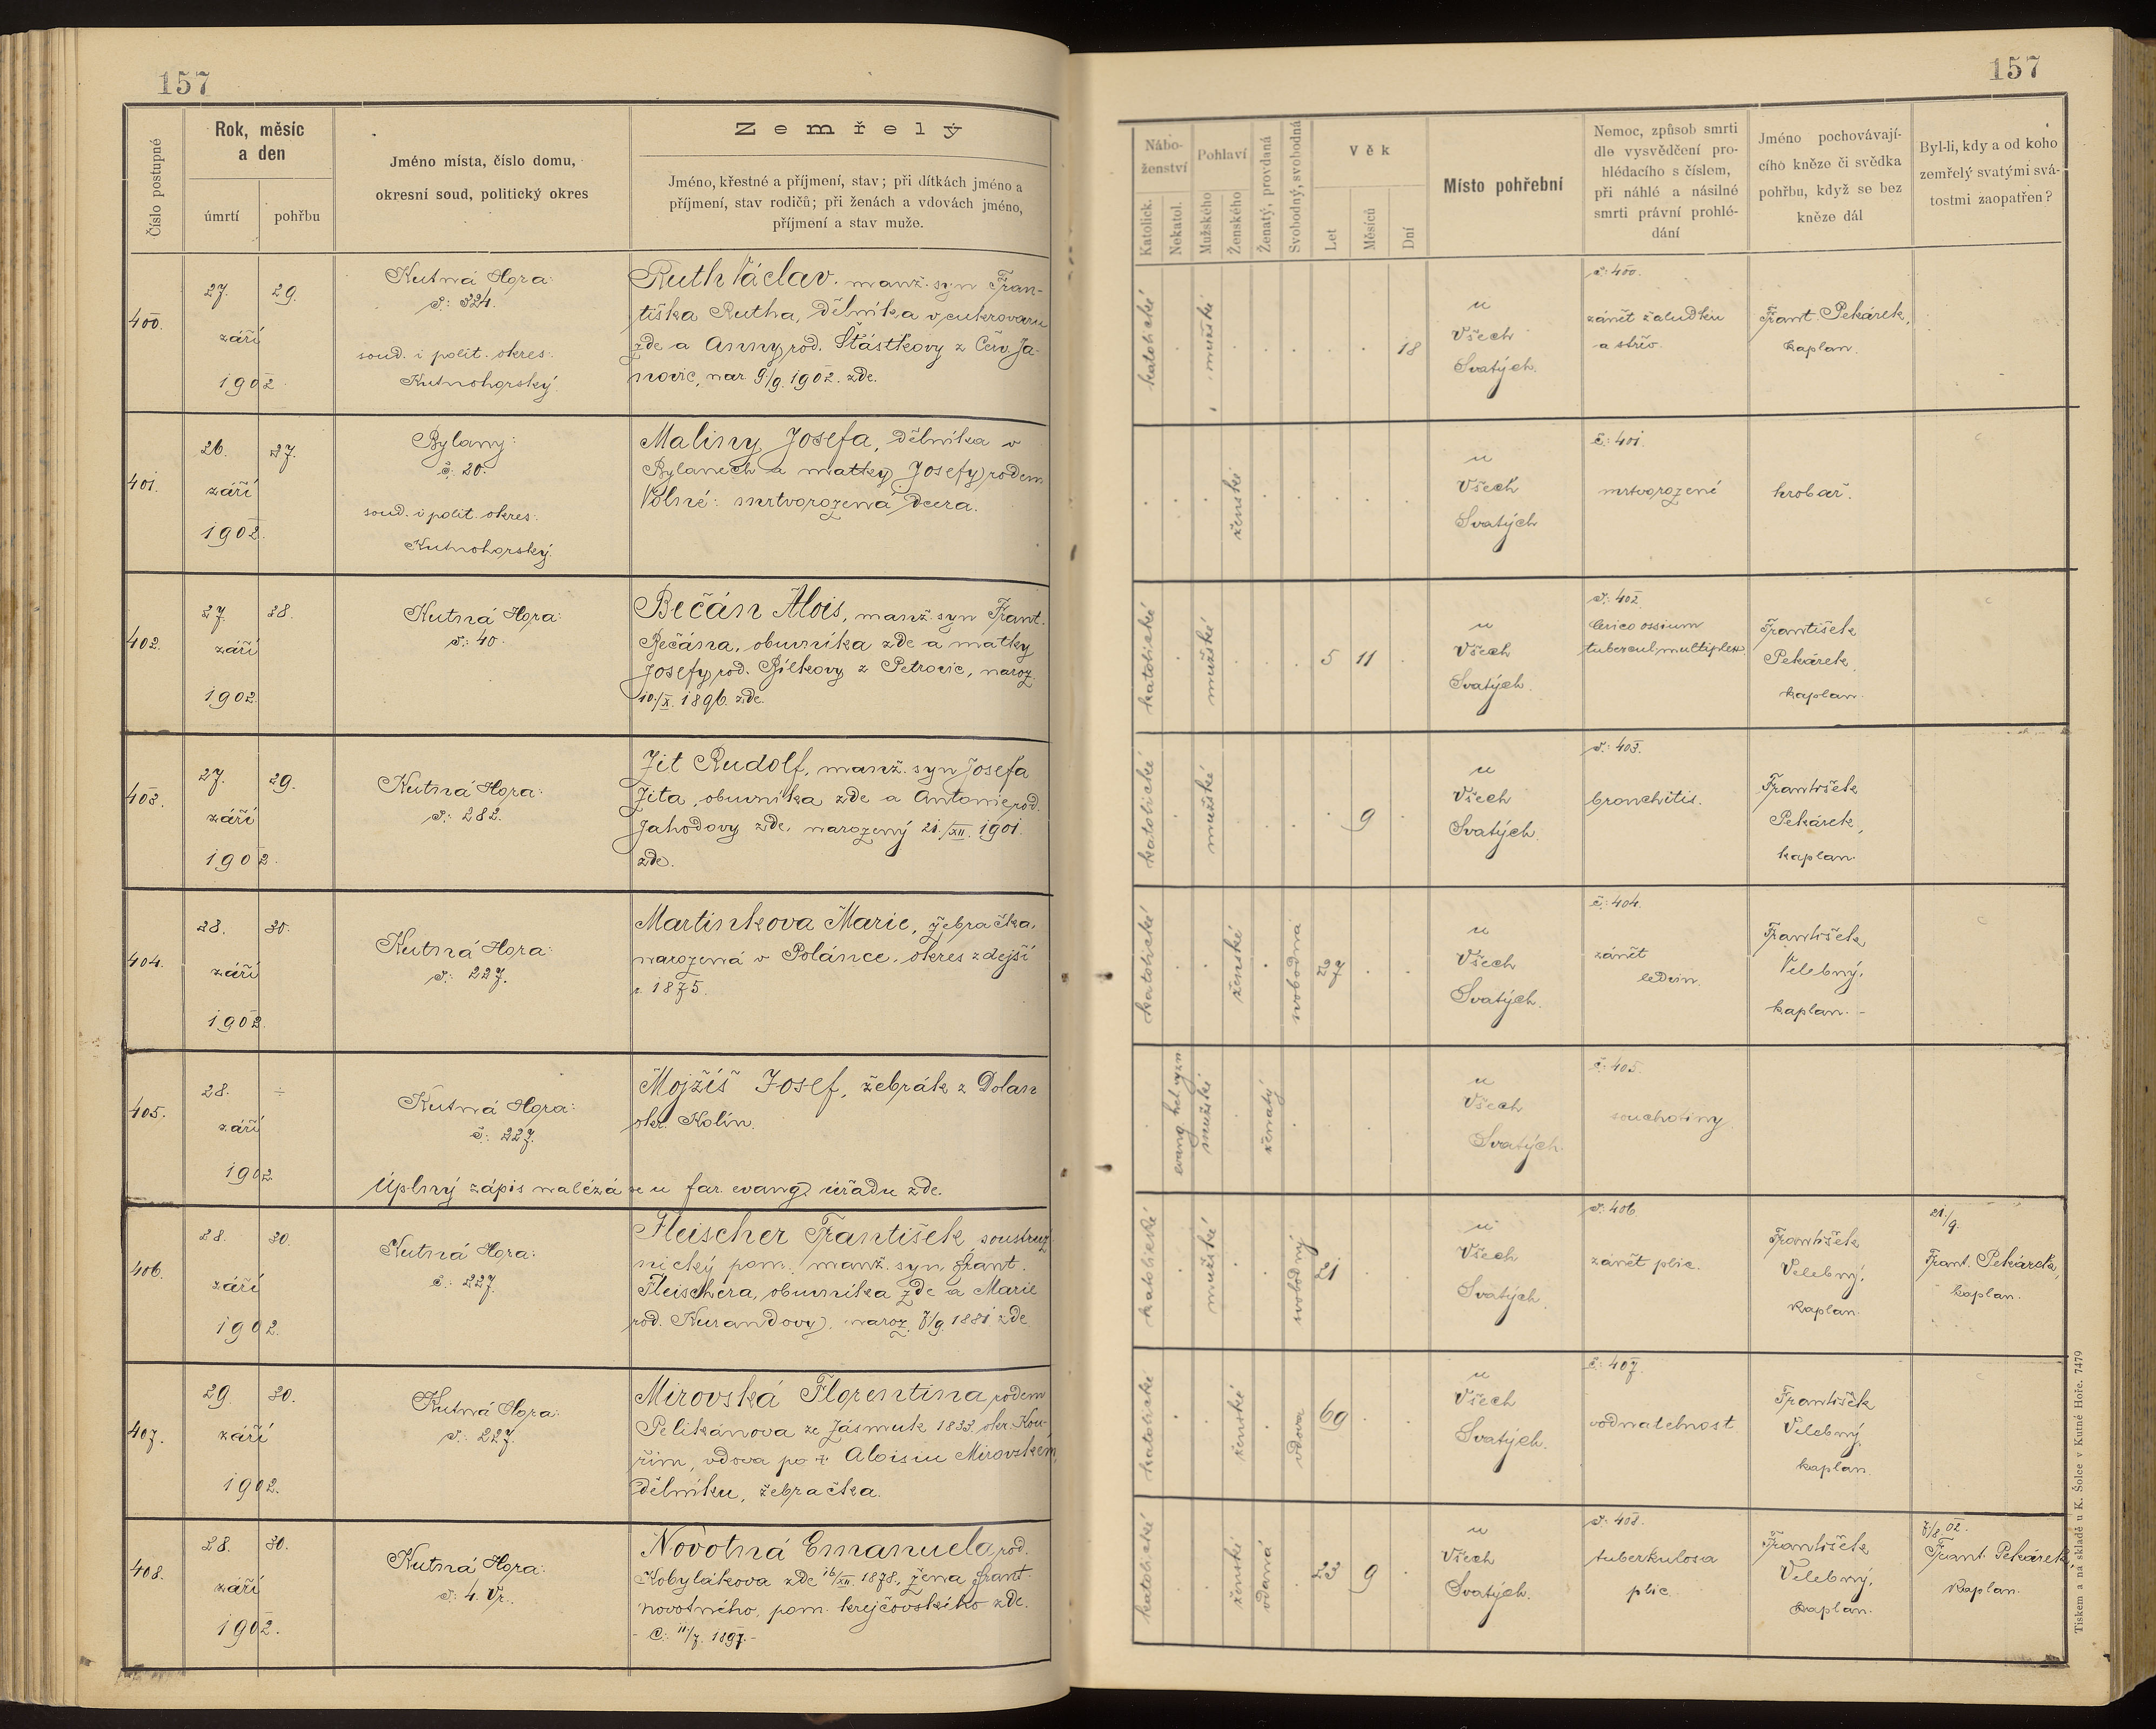 157
Číslo postupné
Rok, měsíc
a den
úmrtí
pohřbu
Jméno místa, číslo domu,
okresní soud, politický okres
Zemřelý
Jméno, křestné a příjmení, stav; při dítkách jméno a
příjmení, stav rodičů; při ženách a vdovách jméno,
příjmení a stav muže.
400.
27.
29.
září
1902.
Kutná Hora:
č: 324.
soud. i polit. okres:
Kutnohorský.
Ruth Václav. manž. syn Fran-
tiška Rutha, dělníka v cukrovaru
zde a Anny rod. Šťástkovy z Červ. Ja-
novic, nar. 9./9. 1902. zde.
401.
26.
27.
září
1902.
Bylany:
č: 20.
soud. i polit. okres:
Kutnohorský.
Maliny Josefa, dělníka v
Bylanech a matky Josefy rodem
Volné: mrtvorozená dcera.
402.
27.
28.
září
1902.
Kutná Hora:
č: 40.
Bečán Alois, manž. syn Frant.
Bečána, obuvníka zde a matky
Josefy rod. Bílkovy z Petrovic, naroz.
10./X. 1896. zde.
403.
27.
29.
září
1902.
Kutná Hora:
č: 282.
Jit Rudolf, manž. syn Josefa
Jita, obuvníka zde a Antonie rod.
Jahodovy zde, narozený 21./XII. 1901.
zde.
404.
28.
30.
září
1902.
Kutná Hora:
č: 227.
Martinkova Marie, žebračka,
narozená v Polánce, okres zdejší
r. 1875.
405.
28.
÷
září
1902
Kutná Hora:
č: 227.
Mojžíš Josef, žebrák z Dolan
okr. Kolín.
Úplný zápis nalézá se u far. evang. úřadu zde.
406.
28.
30.
září
1902.
Kutná Hora:
č: 227.
Fleischer František soustruž-
nický pom. manž. syn Frant.
Fleischera, obuvníka zde a Marie
rod. Kurandovy, naroz. 7/9. 1881 zde
407.
29.
30.
září
1902.
Kutná Hora:
č: 227.
Mirovská Florentina rodem
Pelikánova ze Zásmuk 1833. okr. Kou-
řim, vdova po † Aloisiu Mirovském,
dělníku, žebračka.
408.
28.
30.
září
1902.
Kutná Hora:
č: 4. Vr.
Novotná Emanuela rod.
Kobylákova zde 16/XII. 1878., žena Frant.
Novotného, pom. krejčovského zde.
- C: 11/7. 1897. -
157
Nábo-
ženství
Katolick.
Nekatol.
Pohlaví
Mužského
Ženského
Ženatý, provdaná
Svobodný, svobodná
Věk
Let
Měsíců
Dní
Místo pohřební
Nemoc, způsob smrti
dle vysvědčení pro-
hlédacího s číslem,
při náhlé a násilné
smrti právní prohlé-
dání
Jméno pochovávají-
cího kněze či svědka
pohřbu, když se bez
kněze dál
Byl-li, kdy a od koho
zemřelý svatými svá-
tostmi zaopatřen?
katolické
mužské
18
u
Všech
Svatých.
č: 400.
zánět žaludku
a střev.
Frant. Pekárek,
kaplan.
ženské
u
Všech
Svatých
č: 401.
mrtvorozené
hrobař.
katolické
mužské
5
11
u
Všech
Svatých.
č: 402.
Caries ossium
tubercul. multiplex.
František
Pekárek,
kaplan.
katolické
mužské
9
u
Všech
Svatých.
č: 403.
bronchitis.
František
Pekárek,
kaplan.
katolické
ženské
svobodná
27
u
Všech
Svatých.
č: 404.
zánět
ledvin.
František
Velebný,
kaplan. -
evang. hel. vyzn.
mužské
ženatý
u
Všech
Svatých.
č: 405.
souchotiny.
katolické
mužské
svobodný
21
u
Všech
Svatých.
č: 406
zánět plic.
František
Velebný,
kaplan.
21./9.
Frant. Pekárek,
kaplan.
katolické
ženské
vdova
69
u
Všech
Svatých.
č: 407.
vodnatelnost.
František
Velebný,
kaplan.
katolické
ženské
vdaná
23
9
u
Všech
Svatých.
č: 408.
tuberkulosa
plic.
František
Velebný,
kaplan.
7/8. 02.
Frant. Pekárek,
kaplan.
Tiskem a na skladě u K. Šolce v Kutné Hoře. 7479